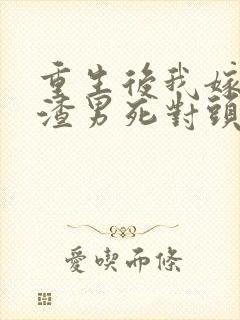 重生後我嫁
渣男死對頭
愛喫而條